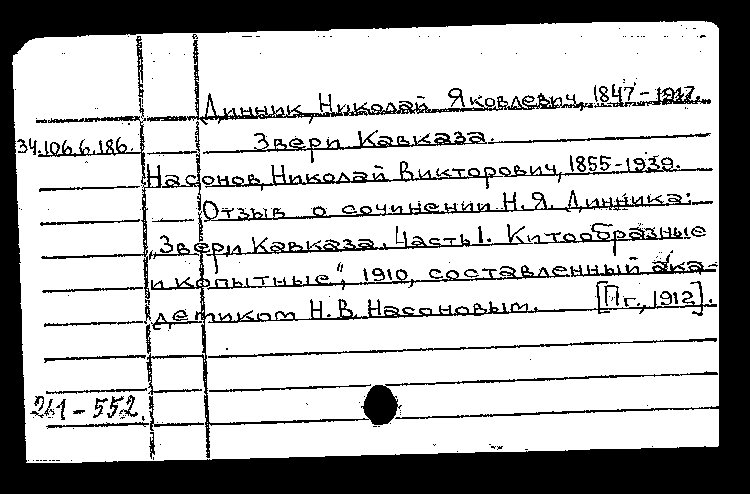 Динник, Николай Яковлевич, 1847-1917.
34.106.6.186. Звери Кавказа.
Насонов, Николай Викторович, 1855-1939.
Отзыв о сочинении Н.Я. Динника:
„Звери Кавказа. Часть I. Китообразные
и копытные“, 1910, составленный ака-
демиком Н.В. Насоновым. [Пг., 1912].
261-552.